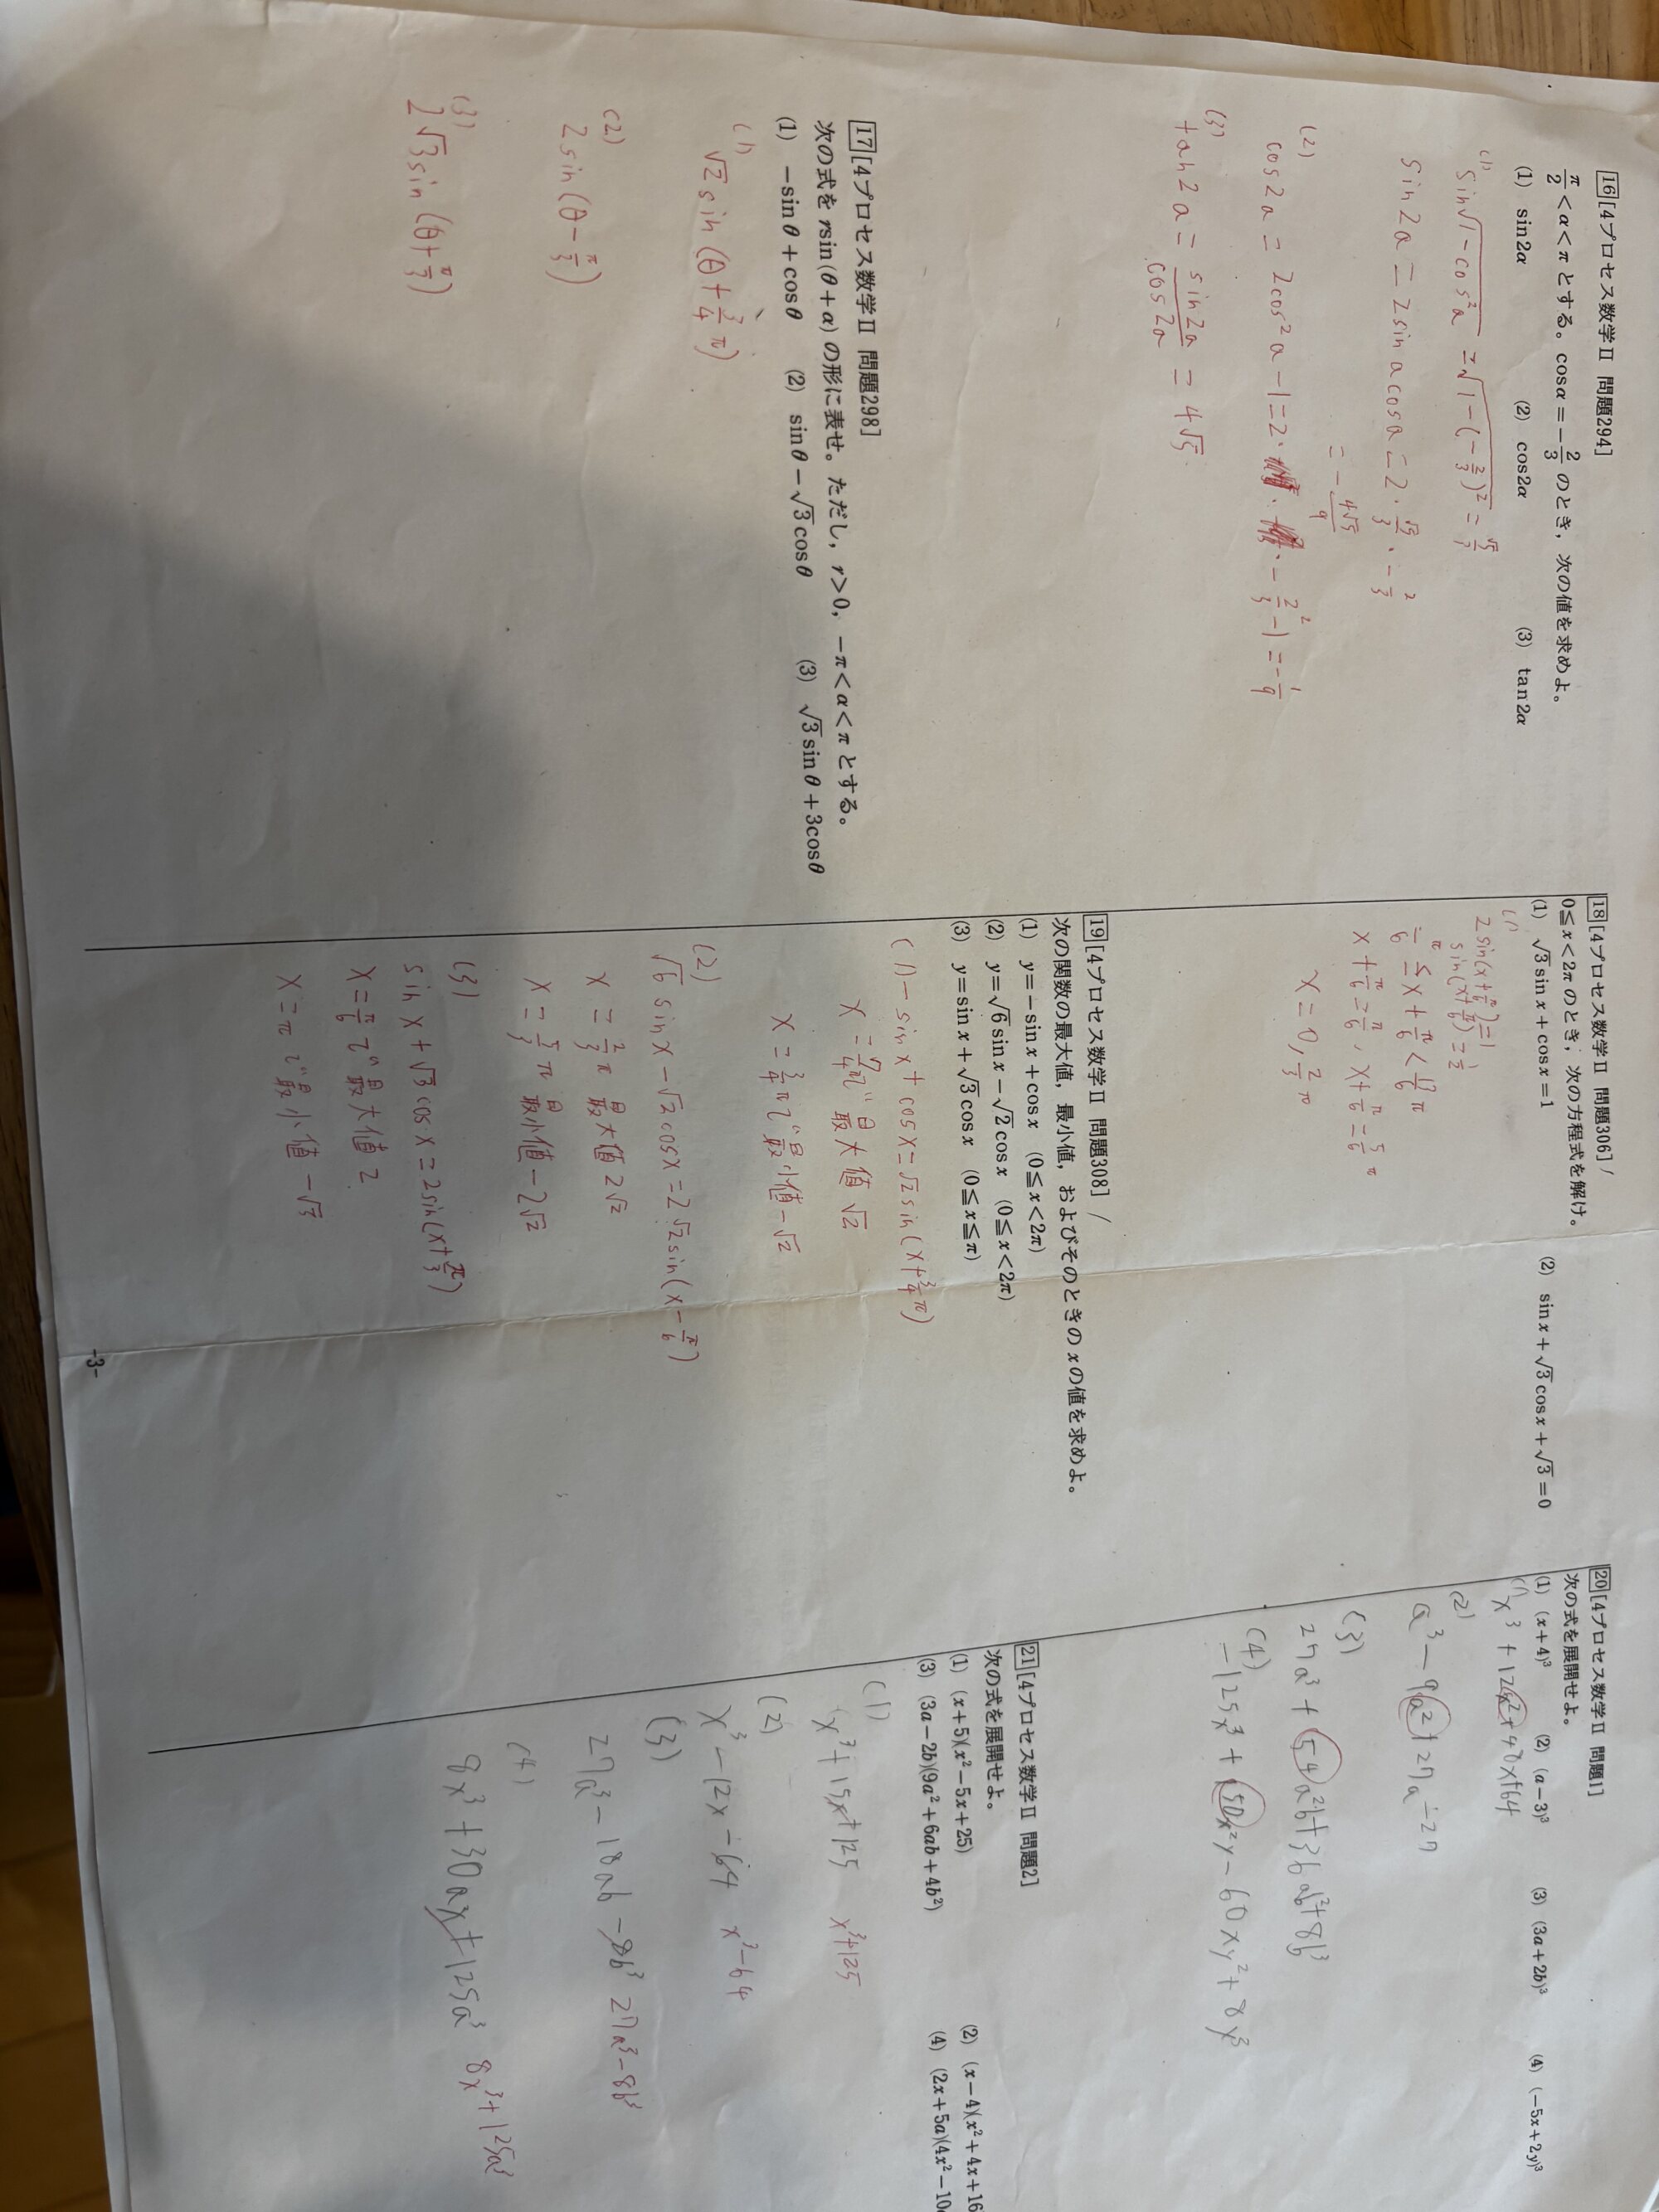 16 [4プロセス数学Ⅱ 問題294]
π/2<α<πとする。cosα=−2/3のとき，次の値を求めよ。
(1) sin2α (2) cos2α (3) tan2α
(1) sin√1−cos²a =√1−(−2/3)² = √5/3
sin2a = 2sin a cos a = 2・√5/3・−2/3
= −4√5/9
(2)
cos2a = 2cos²a −1=2・−2/3² −1=−1/9
(3)
tan2a = sin2a/cos2a = 4√5
17 [4プロセス数学Ⅱ 問題298]
次の式を rsin(θ+α) の形に表せ。ただし，r>0，−π<α<πとする。
(1) −sinθ+cosθ (2) sinθ−√3cosθ (3) √3sinθ+3cosθ
(1)
√2 sin (θ+3/4π)
(2)
2sin(θ−π/3)
(3)
2√3sin (θ+π/3)
18 [4プロセス数学Ⅱ 問題306] /
0≦x<2πのとき，次の方程式を解け。
(1) √3sinx+cosx=1 (2) sinx+√3cosx+√3=0
(1)
2sin(x+π/6)=1
sin(x+π/6)=1/2
π/6≦x+π/6<13/6π
x+π/6=π/6，x+π/6=5/6π
x=0, 2/3π
19 [4プロセス数学Ⅱ 問題308] /
次の関数の最大値，最小値，およびそのときのxの値を求めよ。
(1) y=−sinx+cosx (0≦x<2π)
(2) y=√6sinx−√2cosx (0≦x<2π)
(3) y=sinx+√3cosx (0≦x≦π)
(1)−sinx+cosx=√2sin(x+3/4π)
x=7/4πで最大値√2
x=3/4πで最小値−√2
(2)
√6sinx−√2cosx=2√2sin(x−π/6)
x=2/3π 最大値2√2
x=5/3π 最小値−2√2
(3)
sinx+√3cosx=2sin(x+π/3)
x=π/6で最大値2
x=πで最小値−√3
20 [4プロセス数学Ⅱ 問題1]
次の式を展開せよ。
(1) (x+4)³ (2) (a−3)³ (3) (3a+2b)³ (4) (−5x+2y)³
(1) x³+12x²+48x+64
(2)
a³−9a²+27a−27
(3)
27a³+54a²b+36ab²+8b³
(4)
−125x³+150x²y−60xy²+8y³
21 [4プロセス数学Ⅱ 問題2]
次の式を展開せよ。
(1) (x+5)(x²−5x+25) (2) (x−4)(x²+4x+16
(3) (3a−2b)(9a²+6ab+4b²) (4) (2x+5a)(4x²−10
(1)
x³+15x+125 x³+125
(2)
x³−12x−64 x³−64
(3)
27a³−18ab−8b³ 27a³−8b³
(4)
8x³+30ax+125a³ 8x³+125a³
-3-